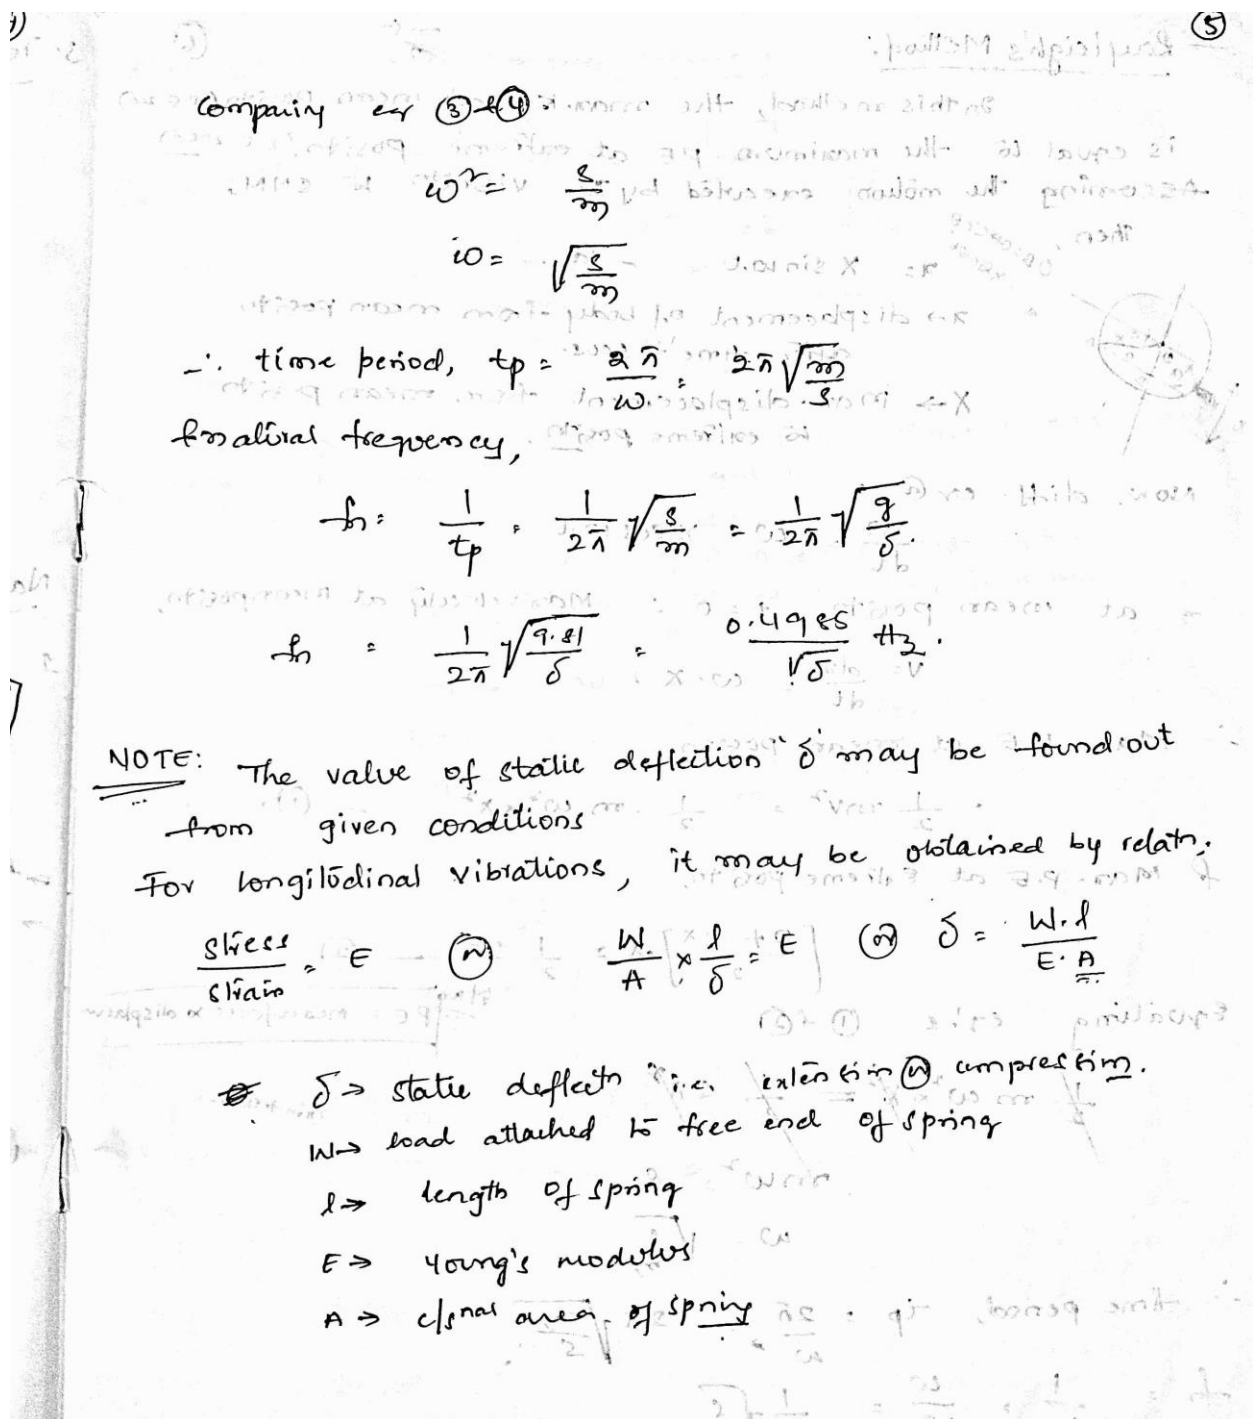 ⑤
Comparing eqn ③ & ④
ω² = s/m
ω = √(s/m)
∴ time period, tp = 2π/ω = 2π√(m/s)
& natural frequency,
fn = 1/tp = 1/2π √(s/m) = 1/2π √(g/δ).
fn = 1/2π √(9.81/δ) = 0.4985/√δ Hz.
NOTE: The value of static deflection 'δ' may be found out
from given conditions
For longitudinal vibrations, it may be obtained by relatn.
stress/strain = E (or) W/A × l/δ = E (or) δ = W.l/E.A
δ → static deflectn i.e. extension (or) compression.
W → load attached to free end of spring
l → length of spring
E → Young's modulus
A → c/snal area of spring